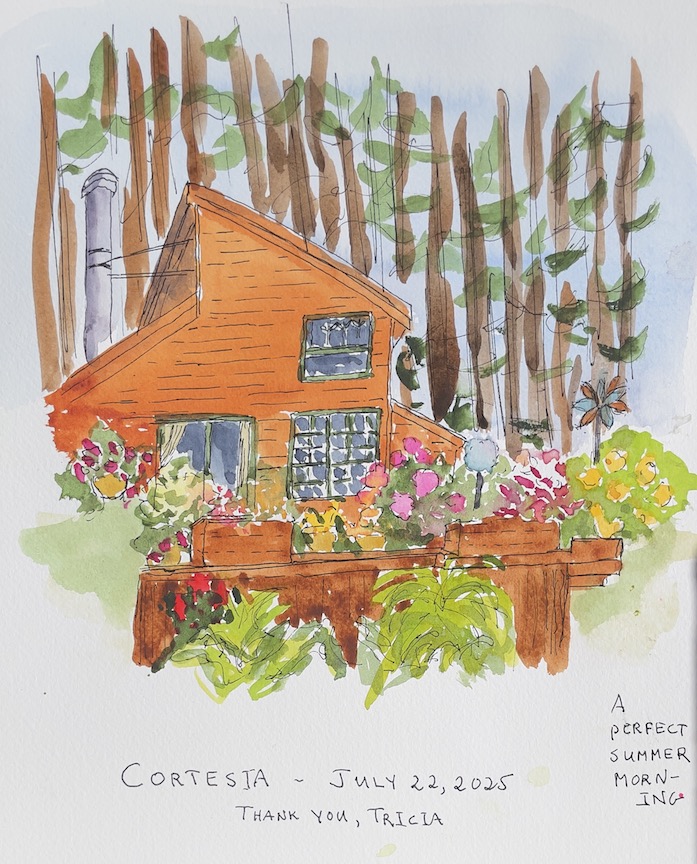 A
PERFECT
SUMMER
MORN-
ING.
CORTESIA ~ JULY 22, 2025
THANK YOU, TRICIA